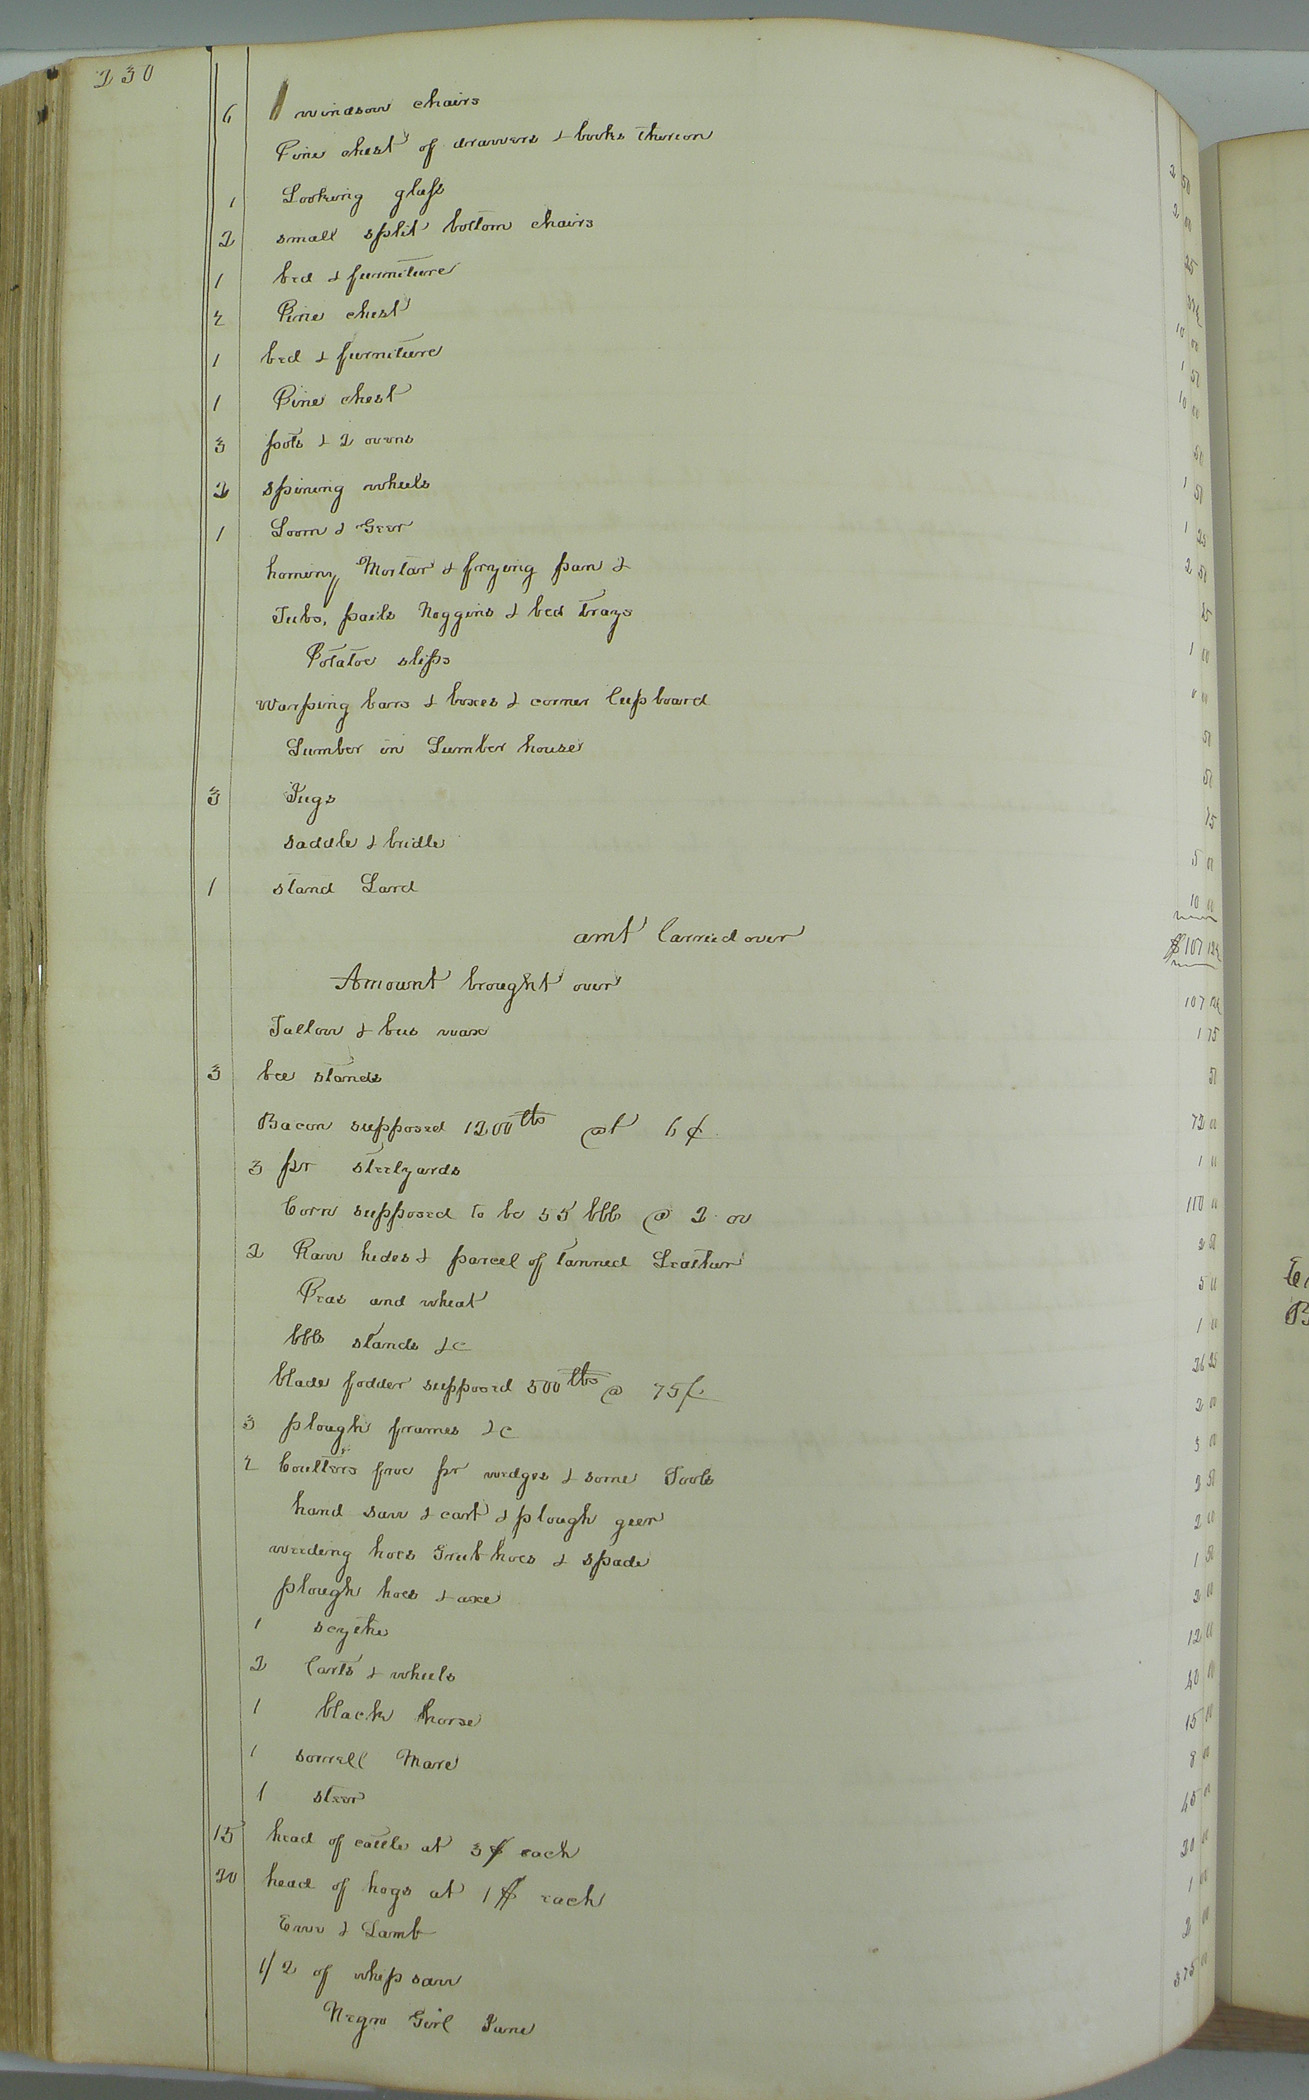 230
6 windsor chairs 2 50
Pine chest of drawers & books thereon 2 00
1 Looking glass 25
2 small split bottom chairs 37½
1 bed & furniture 10 00
2 Pine chest 1 50
1 bed & furniture 10 00
1 Pine chest 50
3 pots & 2 ovens 1 50
2 spining wheels 1 25
1 Loom & Geer 2 50
hominy Mortar & frying pan & 25
Tubs, pails Noggins & bed trays 1 00
Potatoe slips
Warping bars & boxes & corner Cupboard 50
Lumber in Lumber house 50
3 Jugs 75
saddle & bridle 5 00
1 stand Lard 10 00
amt Carried over $107 12½
Amount brought over 107 12½
Tallow & bees wax 1 75
3 bee stands 50
Bacon supposed 1200 lbs at 6¢ 72 00
3 pr steelyards 1 00
Corn supposed to be 55 bbls @ 2 00 110 00
2 Raw hides & parcel of tanned Leather 2 50
Peas and wheat 5 00
bbls stands &c 1 00
blade fodder supposd 3500 lbs @ 75/c 26 25
3 plough frames &c 2 00
2 Coulters froe pr wedges & some Tools 5 00
hand saw & cart & plough geer 2 50
weeding hoes Grub hoes & spade 2 00
plough hoes & axe 1 50
1 scythe 2 00
2 Carts & wheels 12 00
1 black horse 40 00
1 sorrell Mare 15 00
1 steer 8 00
15 head of cattle at 3$ each 45 00
20 head of hogs at 1$ each 20 00
Ewe & Lamb 1 00
1/2 of whip saw 2 00
Negro Girl Jane 375 00